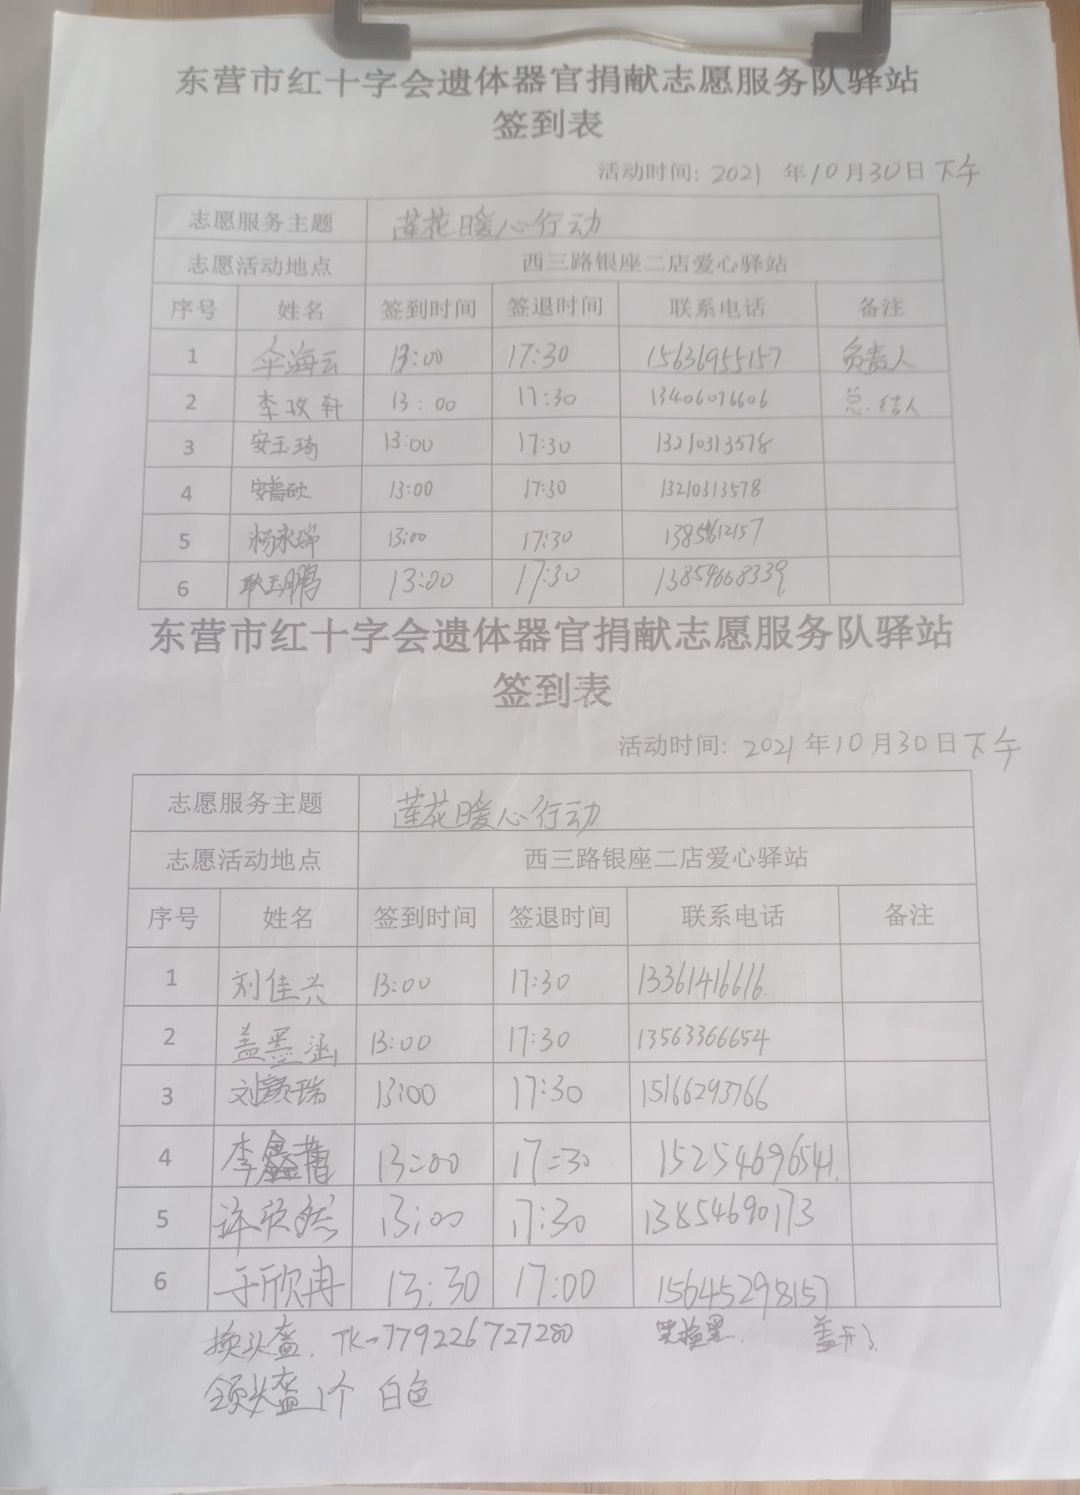 东营市红十字会遗体器官捐献志愿服务队驿站
签到表
活动时间: 2021 年10月30日下午
志愿服务主题 莲花暖心行动
志愿活动地点 西三路银座二店爱心驿站
序号 姓名 签到时间 签退时间 联系电话 备注
1 海云 13:00 17:30 15636955157 负责人
2 李玫轩 13:00 17:30 13406076606 总结人
3 安玉琦 13:00 17:30 13210313578
4 13:00 17:30 13210313578
5 杨永瑞 13:00 17:30
6 耿玉鹏 13:00 17:30 13854668339
东营市红十字会遗体器官捐献志愿服务队驿站
签到表
活动时间: 2021年10月30日下午
志愿服务主题 莲花暖心行动
志愿活动地点 西三路银座二店爱心驿站
序号 姓名 签到时间 签退时间 联系电话 备注
1 刘佳兴 13:00 17:30 13361416616.
2 盖墨涵 13:00 17:30 13563366654
3 刘颢瑞 13:00 17:30 15166293766
4 李鑫 13:00 17:30 15254696541.
5 许欣然 13:00 17:30 13854690173
6 于欣冉 13:30 17:00 15645298157
换头盔. TK-779226727280
领头盔1个 白色